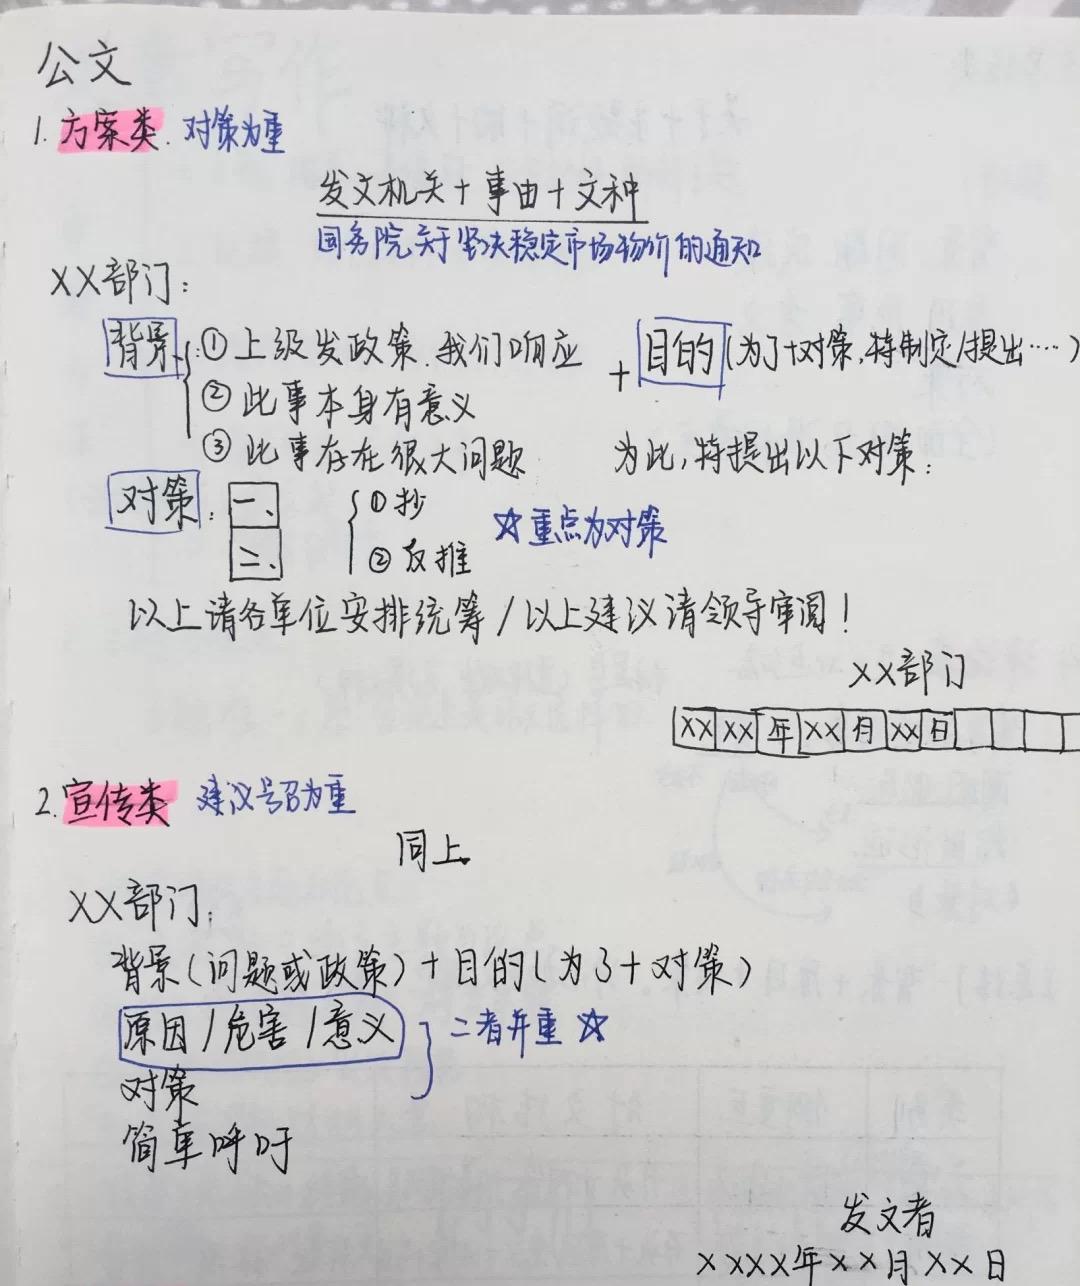 公文
1. 方案类. 对策为重
发文机关+事由+文种
国务院关于坚决稳定市场物价的通知
XX部门:
背景: ①上级发政策.我们响应 + 目的(为了+对策,特制定/提出····)
②此事本身有意义
③此事存在很大问题 为此,特提出以下对策:
对策: 一、 ①抄 ☆重点为对策
二、 ②反推
以上请各单位安排统筹/以上建议请领导审阅!
XX部门
XXXX年XX月XX日
2. 宣传类 建议号召为重
同上.
XX部门:
背景(问题或政策)+目的(为了+对策)
原因/危害/意义 二者并重☆
对策
简单呼吁
发文者
XXXX年XX月XX日